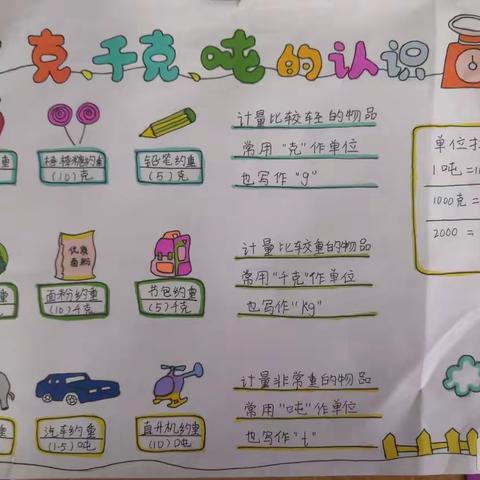 克、千克、吨的认识
棒棒糖约重
(10)克
铅笔约重
(5)克
计量比较轻的物品
常用“克”作单位
也写作“g”
单位
1吨=1
1000克=
2000 =
优质
面粉
面粉约重
(10)千克
书包约重
(5)千克
计量比较重的物品
常用“千克”作单位
也写作“kg”
汽车约重
(1.5)吨
直升机约重
(10)吨
计量非常重的物品
常用“吨”作单位
也写作“t”